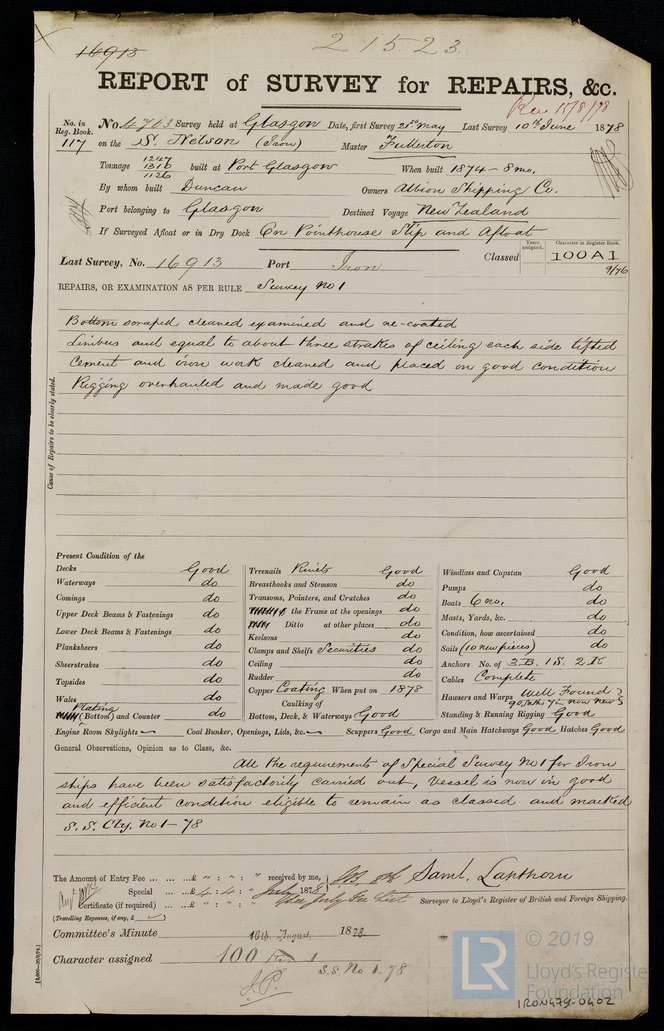 16913
21523
REPORT of SURVEY for REPAIRS, &c.
Rec 15/8/78
No. in Reg. Book. No 4703 Survey held at Glasgow Date, first Survey 21st May Last Survey 10th June 1878
117 on the S. Nelson (Iron) Master Fullerton
Tonnage 1247 1310 1126 built at Port Glasgow When built 1874 - 8 mo.
By whom built Duncan Owners Albion Shipping Co.
Port belonging to Glasgow Destined Voyage New Zealand
If Surveyed Afloat or in Dry Dock On Pointhouse Slip and Afloat
Years assigned. Character in Register Book.
Last Survey, No. 16913 Port Iron Classed 100A1
9/76
REPAIRS, OR EXAMINATION AS PER RULE Survey No 1
Bottom scraped cleaned examined and re-coated
Limbers and equal to about three strakes of ceiling each side lifted
Cement and iron work cleaned and placed in good condition
Rigging overhauled and made good
Cause of Repairs to be clearly stated.
Present Condition of the
Decks Good
Waterways do
Comings do
Upper Deck Beams & Fastenings do
Lower Deck Beams & Fastenings do
Planksheers do
Sheerstrakes do
Topsides do
Wales do
Plating (Bottom) and Counter do
Treenails Rivets Good
Breasthooks and Stemson do
Transoms, Pointers, and Crutches do
the Frame at the openings do
Ditto at other places do
Keelsons do
Clamps and Shelfs Securities do
Ceiling do
Rudder do
Copper Coating When put on 1878
Caulking of
Bottom, Deck, & Waterways Good
Windlass and Capstan Good
Pumps do
Boats 6 no. do
Masts, Yards, &c. do
Condition, how ascertained do
Sails (10 new pieces) do
Anchors No. of 3.B. 1 S. 2 K
Cables Complete
Hawsers and Warps Well Found
Standing & Running Rigging Good
Engine Room Skylights Coal Bunker, Openings, Lids, &c. Scuppers Good Cargo and Main Hatchways Good Hatches Good
General Observations, Opinion as to Class, &c.
All the requirements of Special Survey No 1 for Iron
ships have been satisfactorily carried out, Vessel is now in good
and efficient condition eligible to remain as classed and marked
S.S. Cty. No 1 - 78
The Amount of Entry Fee ... ... ...£ " : " : " received by me,
Special ... ...£ 4 : 4 : " July 1878
Certificate (if required) ... ...£ " : " : " See July Fee List
Saml. Lapthorn
Surveyor to Lloyd's Register of British and Foreign Shipping.
(Travelling Expenses, if any, £ )
Committee's Minute 16th August, 1878.
Character assigned 100 1
S.S. No 1 - 78
J.P.
LR © 2019
Lloyd's Register
Foundation
IRON479-0402